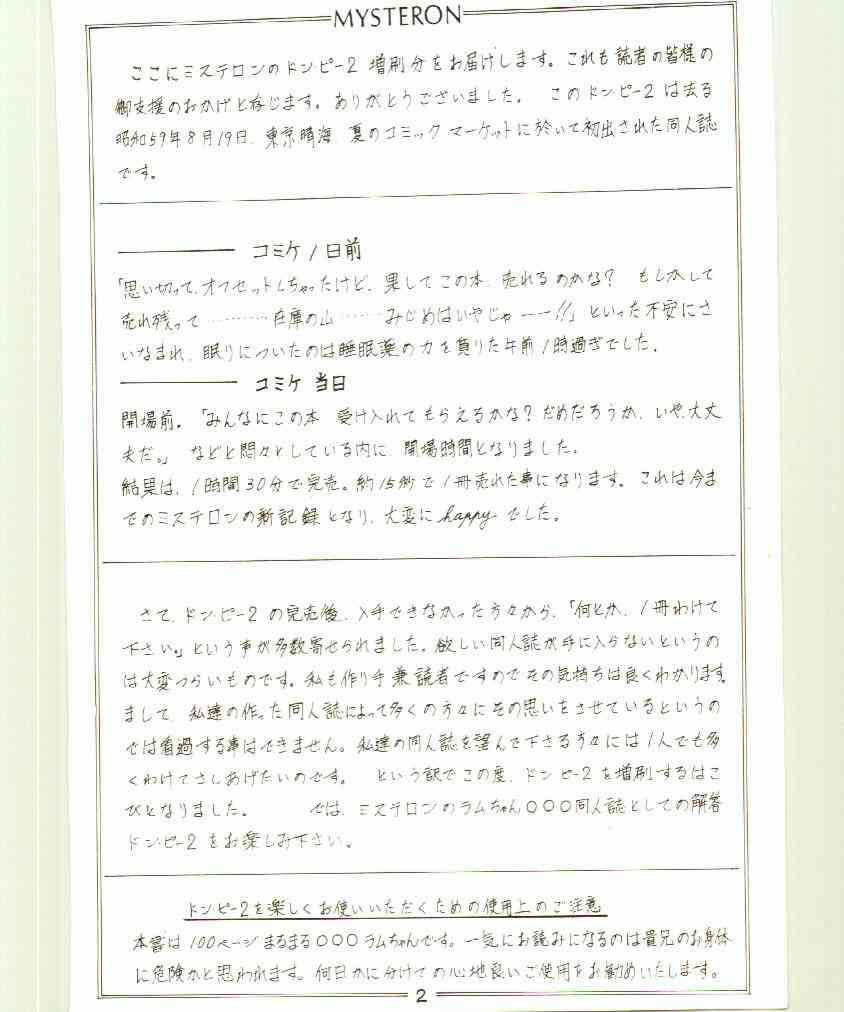 MYSTERON
ここにミステロンのドン・ピー2 増刷分をお届けします。これも読者の皆様の
御支援のおかげと存じます。ありがとうございました。 このドンピー2は去る
昭和59年8月19日、東京晴海、夏のコミックマーケットに於いて初出された同人誌
です。
コミケ1日前
「思い切って、オフセットしちゃったけど、果してこの本、売れるのかな？ もしかして
売れ残って…………在庫の山………みじめはいやじゃーー!!」といった不安にさ
いなまれ、眠りについたのは睡眠薬の力を借りた午前1時過ぎでした。
コミケ当日
開場前。「みんなにこの本 受け入れてもらえるかな？だめだろうか、いや、大丈
夫だ。」などと悶々としている内に、開場時間となりました。
結果は、1時間30分で完売。約15秒で1冊売れた事になります。これは今ま
でのミステロンの新記録となり、大変にhappyでした。
さて、ドン・ピー2の完売後、入手できなかった方々から、「何とか、1冊わけて
下さい。」という声が多数寄せられました。欲しい同人誌が手に入らないというの
は大変つらいものです。私も作り手兼読者ですのでその気持ちは良くわかります。
まして、私達の作った同人誌によって多くの方々にその思いをさせているというの
では看過する事はできません。私達の同人誌を望んで下さる方々には1人でも多
くわけてさしあげたいのです。 という訳でこの度、ドンピー2を増刷するはこ
びとなりました。 では、ミステロンのラムちゃん○○○同人誌としての解答
ドン・ピー2をお楽しみ下さい。
ドン・ピー2を楽しくお使いいただくための使用上のご注意
本書は100ページまるまる○○○ラムちゃんです。一気にお読みになるのは貴兄のお身体
に危険かと思われます。何日かに分けての心地良いご使用をお勧めいたします。
2